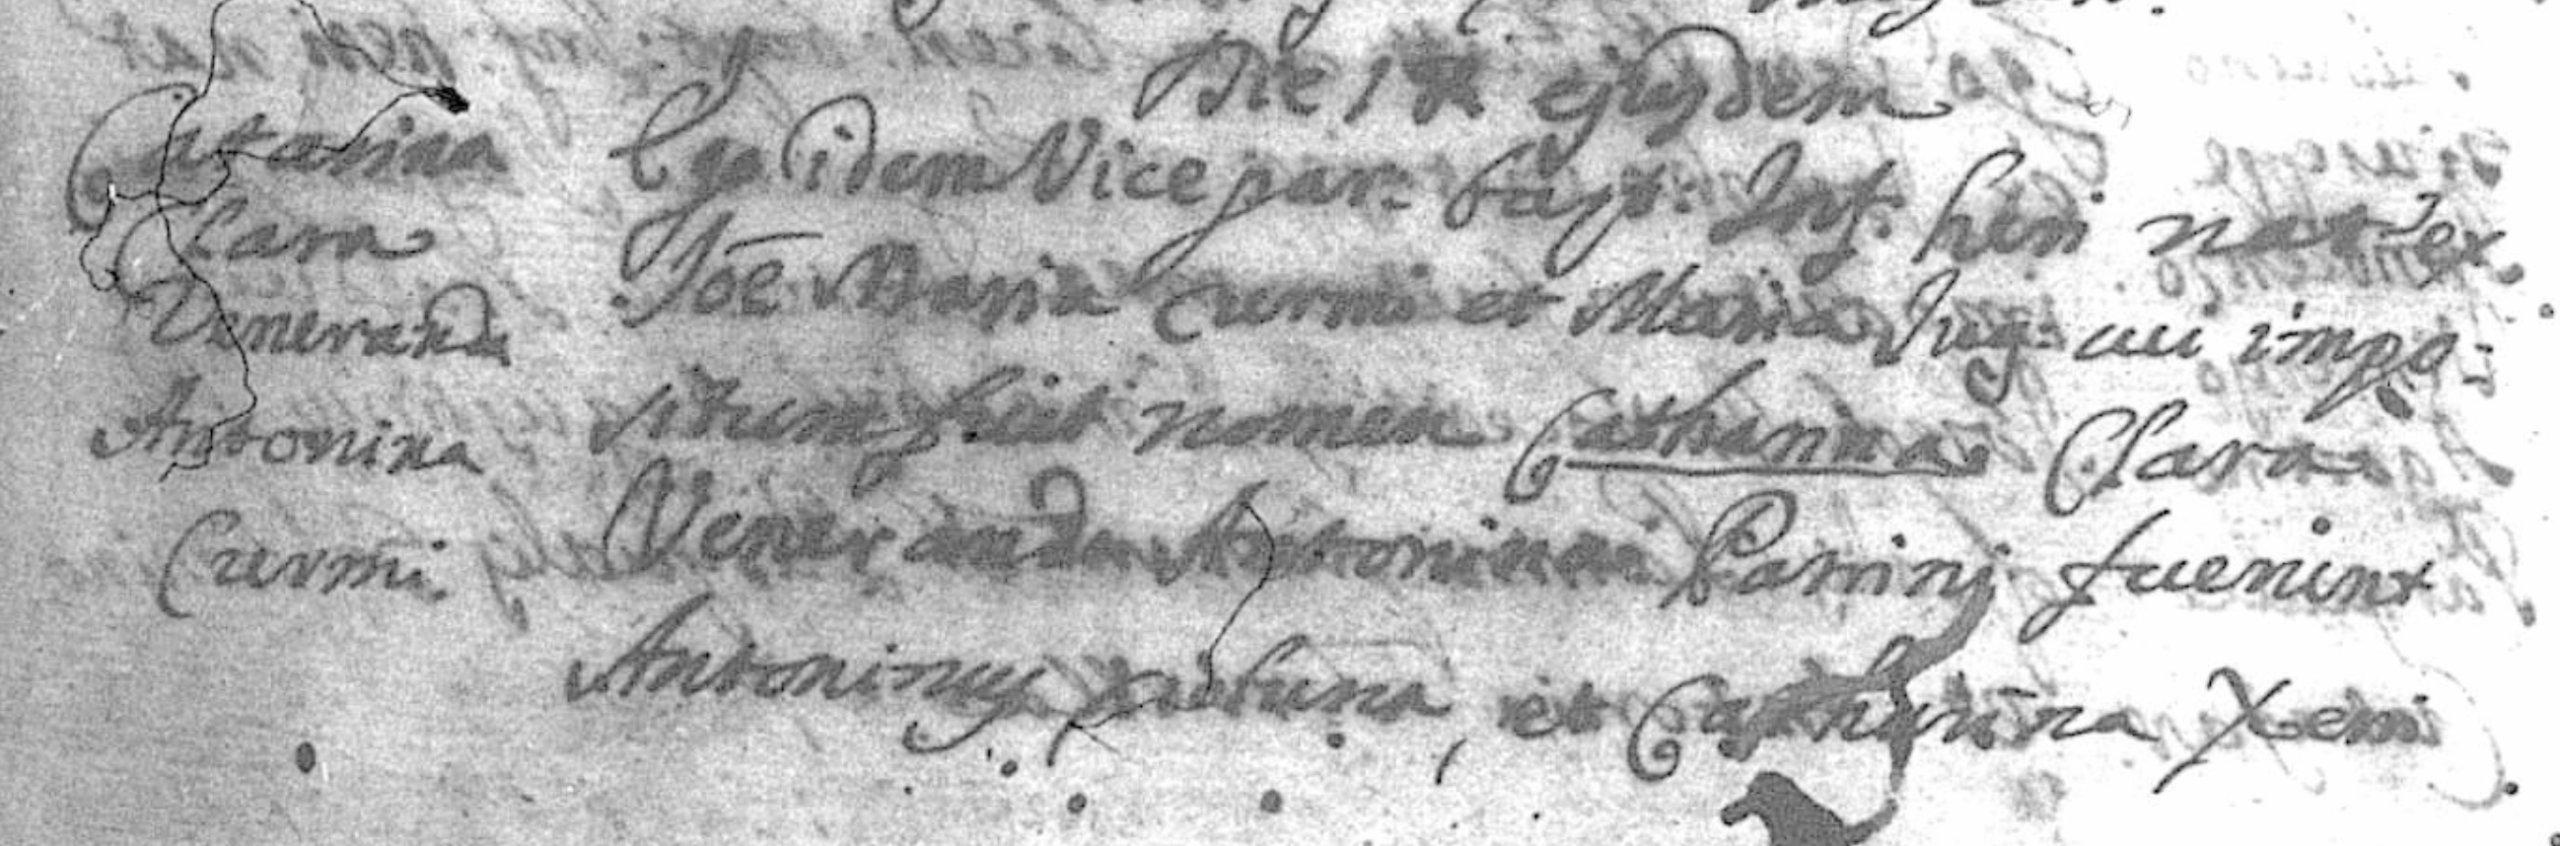 Die ejusdem
Catarina
Clara
Veneranda
Antonina
Curmi
Ego idem Vicepar: bapt: Inf: heri nat: ex
Joē Maria Curmi et Maria Jug: cui impo-
situm fuit nomen Catharina Clara
Veneranda Antonina Patrini fuerunt
Antoninus et Catharina Xerri